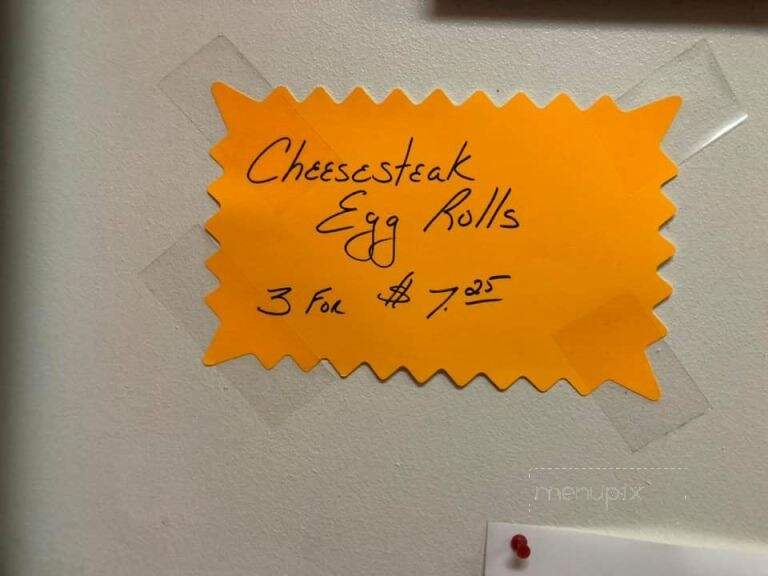 Cheesesteak
Egg Rolls
3 For $ 7.25
menupix